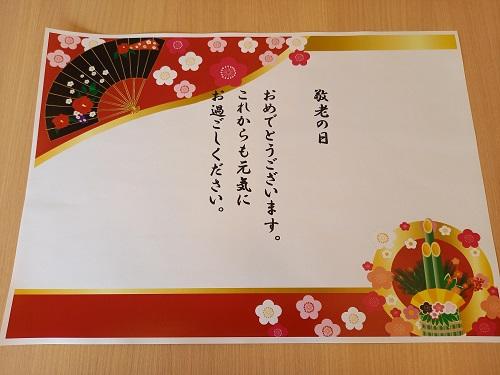 敬老の日
おめでとうございます。
これからも元気に
お過ごしください。